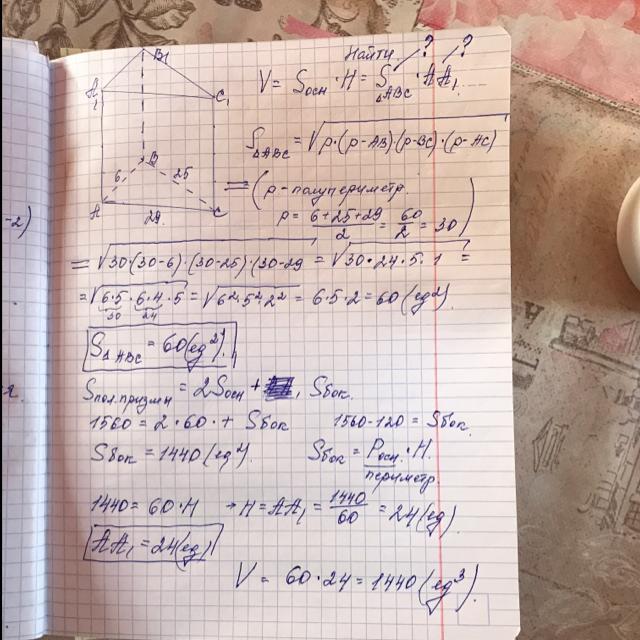 Найти ? ?
V = Sосн · H = S△ABC · AA₁.
B₁
A₁
C₁
B
6
25
A
C
29
S△ABC = √p·(p-AB)(p-BC)·(p-AC)
= (p - полупериметр.
p = (6+25+29)/2 = 60/2 = 30)
= √30·(30-6)·(30-25)·(30-29 = √30·24·5·1 =
= √6·5·6·4·5 = √6²·5²·2² = 6·5·2 = 60 (ед²).
30 24
S△ABC = 60(ед²).
Sпол.призмы = 2Sосн + Sбок.
1560 = 2·60· + Sбок 1560-120 = Sбок.
Sбок = 1440 (ед²). Sбок = Pосн.·H.
периметр.
1440 = 60·H → H = AA₁ = 1440/60 = 24 (ед).
AA₁ = 24(ед)
V = 60·24 = 1440 (ед³).
-2)
я.